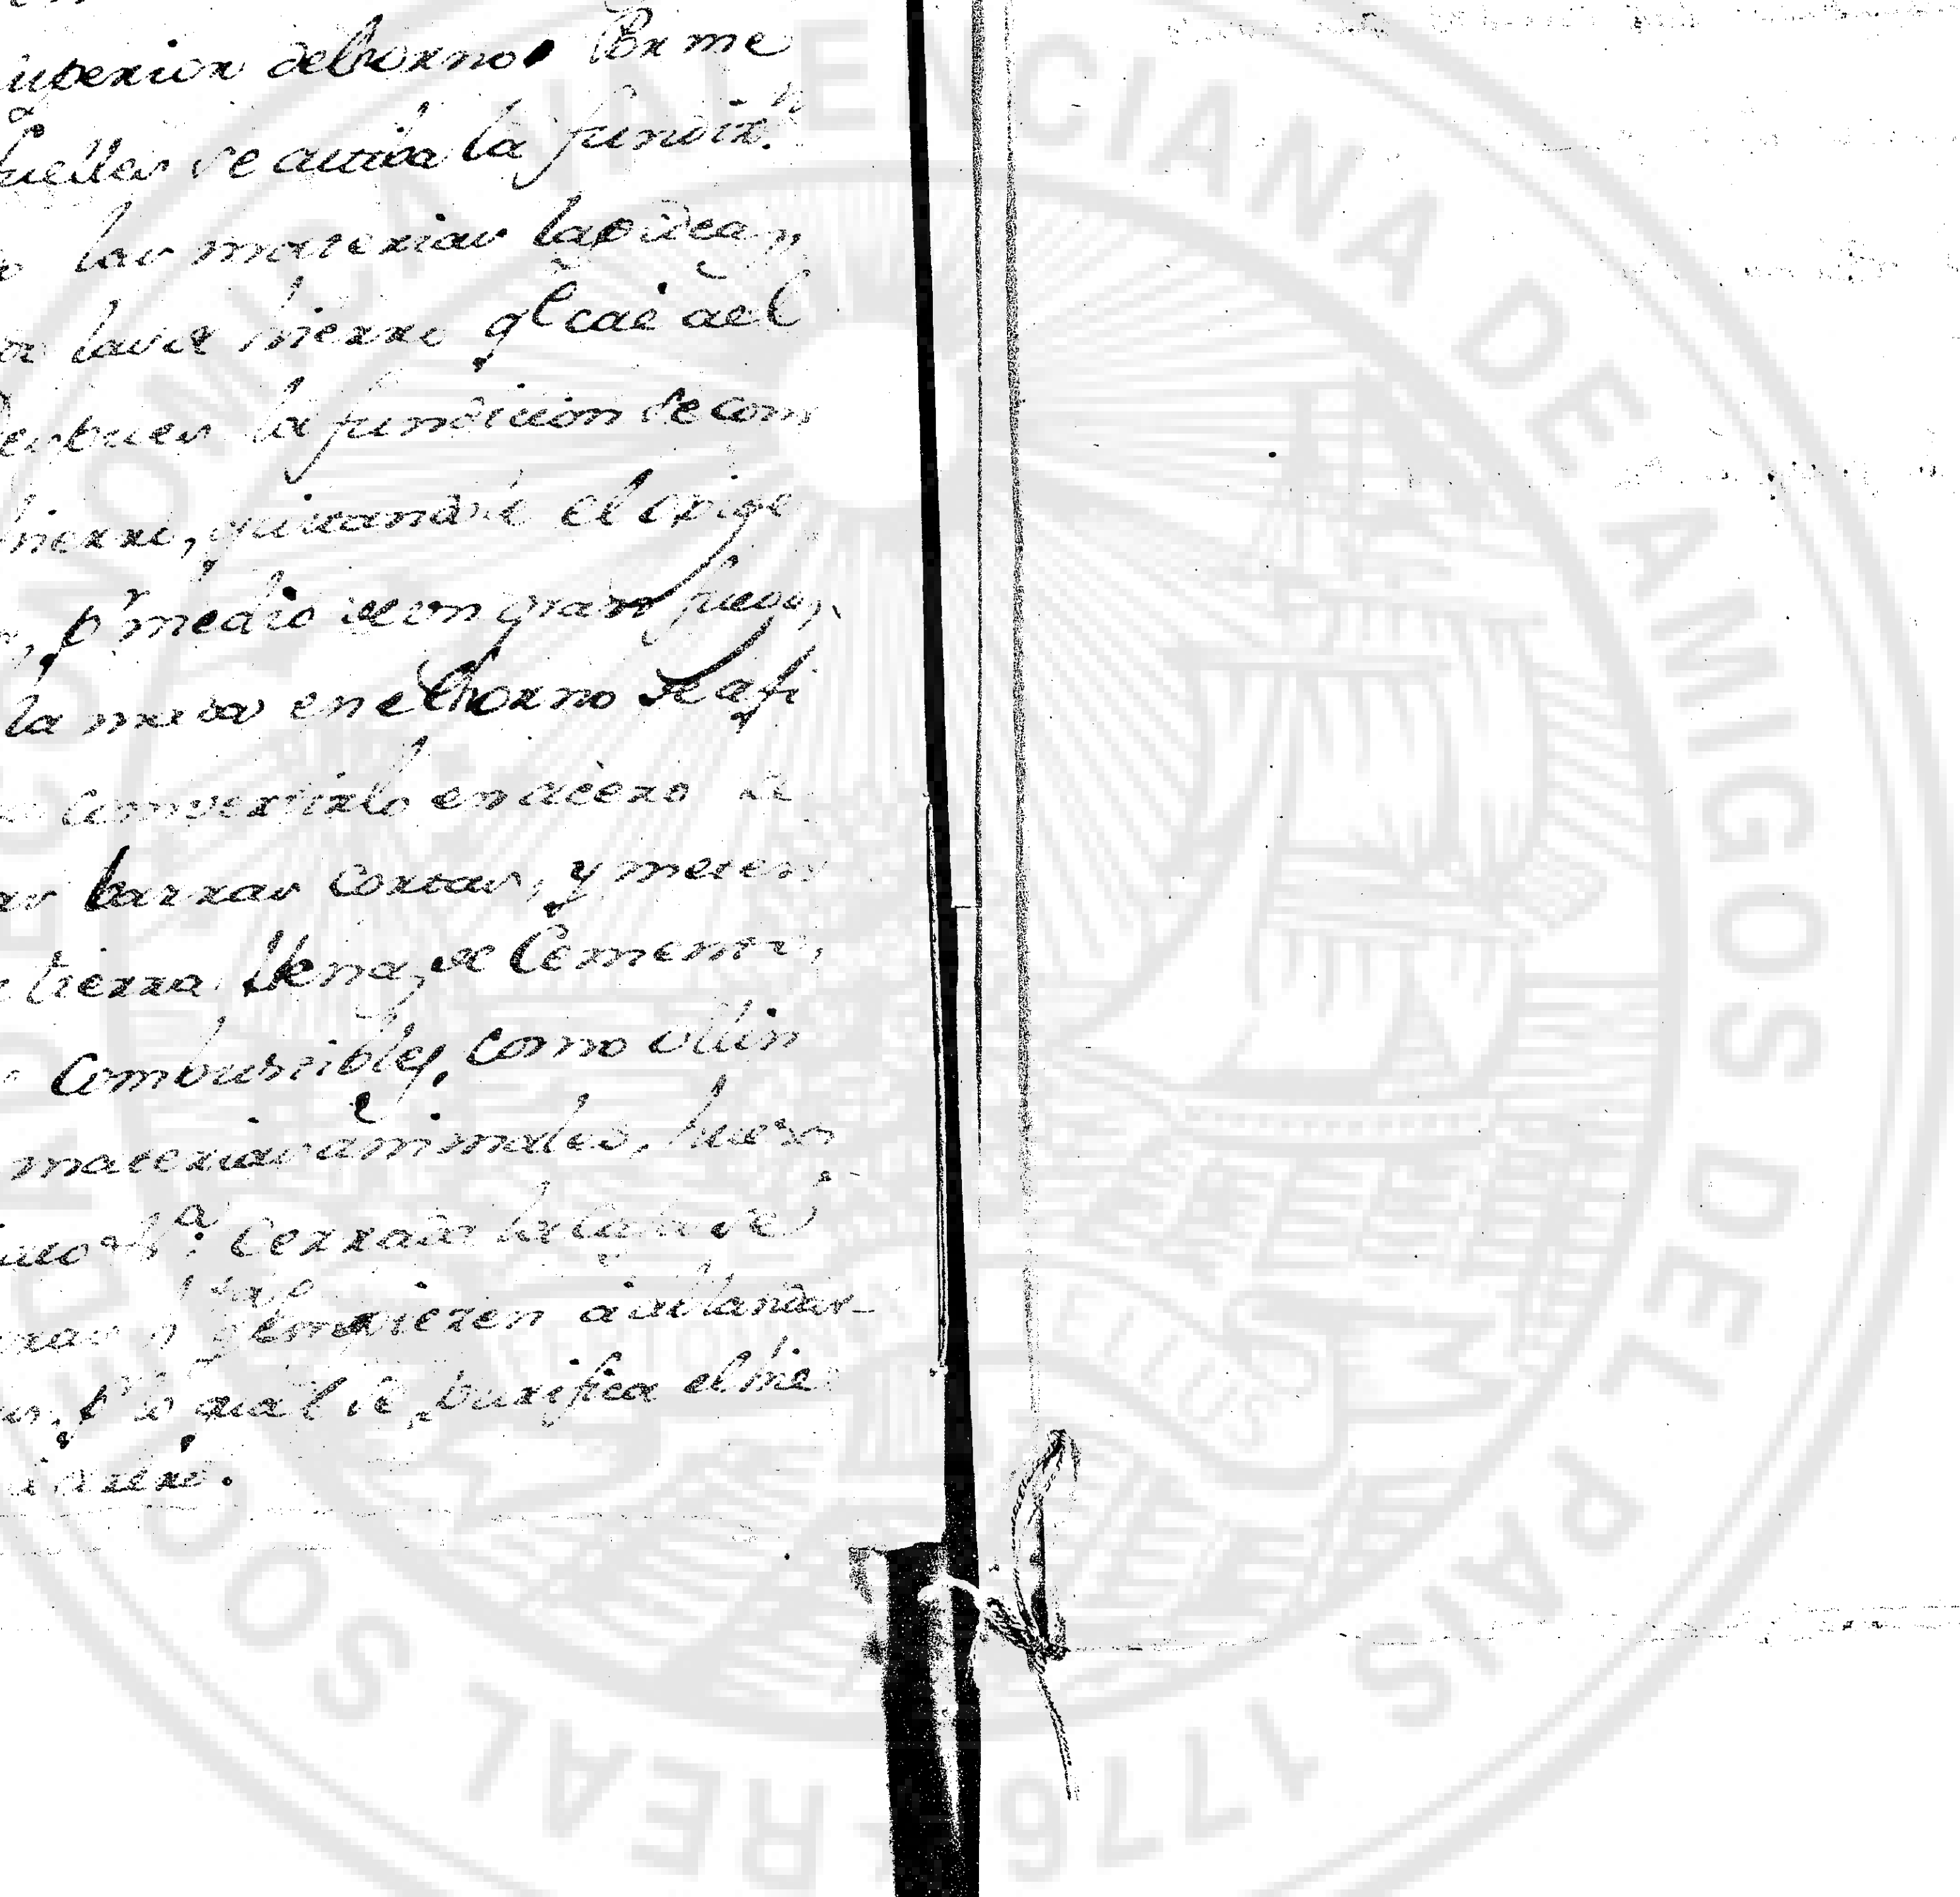 uperior del horno. Por me
fuelles se activa la fundic.n
las materias lapideas,
las de hierro q.e cae al
Despues la fundicion se com
hierro, quitandole el oxige
p.r medio de un gran fuego,
la masa en el horno se afi
convertirlo en acero se
barras cortas, y meten
tierra llena de Cemento,
combustibles, como ollin
materias animales, huesos
a. Cerrada la Caja se
q.e empiezen à ablandar-
p.r lo qual se purifica el hie
acero.
ECONOMICA VALENCIANA DE AMIGOS DEL PAIS 1776 REAL SO